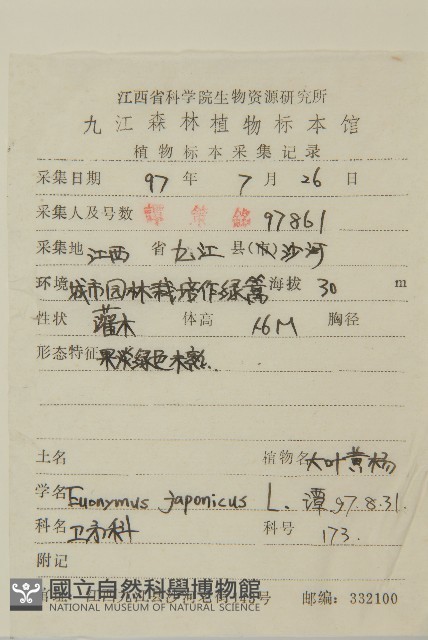 江西省科学院生物资源研究所
九江森林植物标本馆
植物标本采集记录
采集日期 97 年 7 月 26 日
采集人及号数 譚策銘 97861
采集地 江西 省 九江 县(市) 沙河
环境 城市园林栽培作绿篱 海拔 30 m
性状 灌木 体高 1.6M 胸径
形态特征 果淡绿色未熟.
土名 植物名 大叶黄杨
学名 Euonymus japonicus L. 谭.97.8.31.
科名 卫矛科 科号 173.
附记
國立自然科學博物館
NATIONAL MUSEUM OF NATURAL SCIENCE
江西九江县沙河老街 号 邮编: 332100